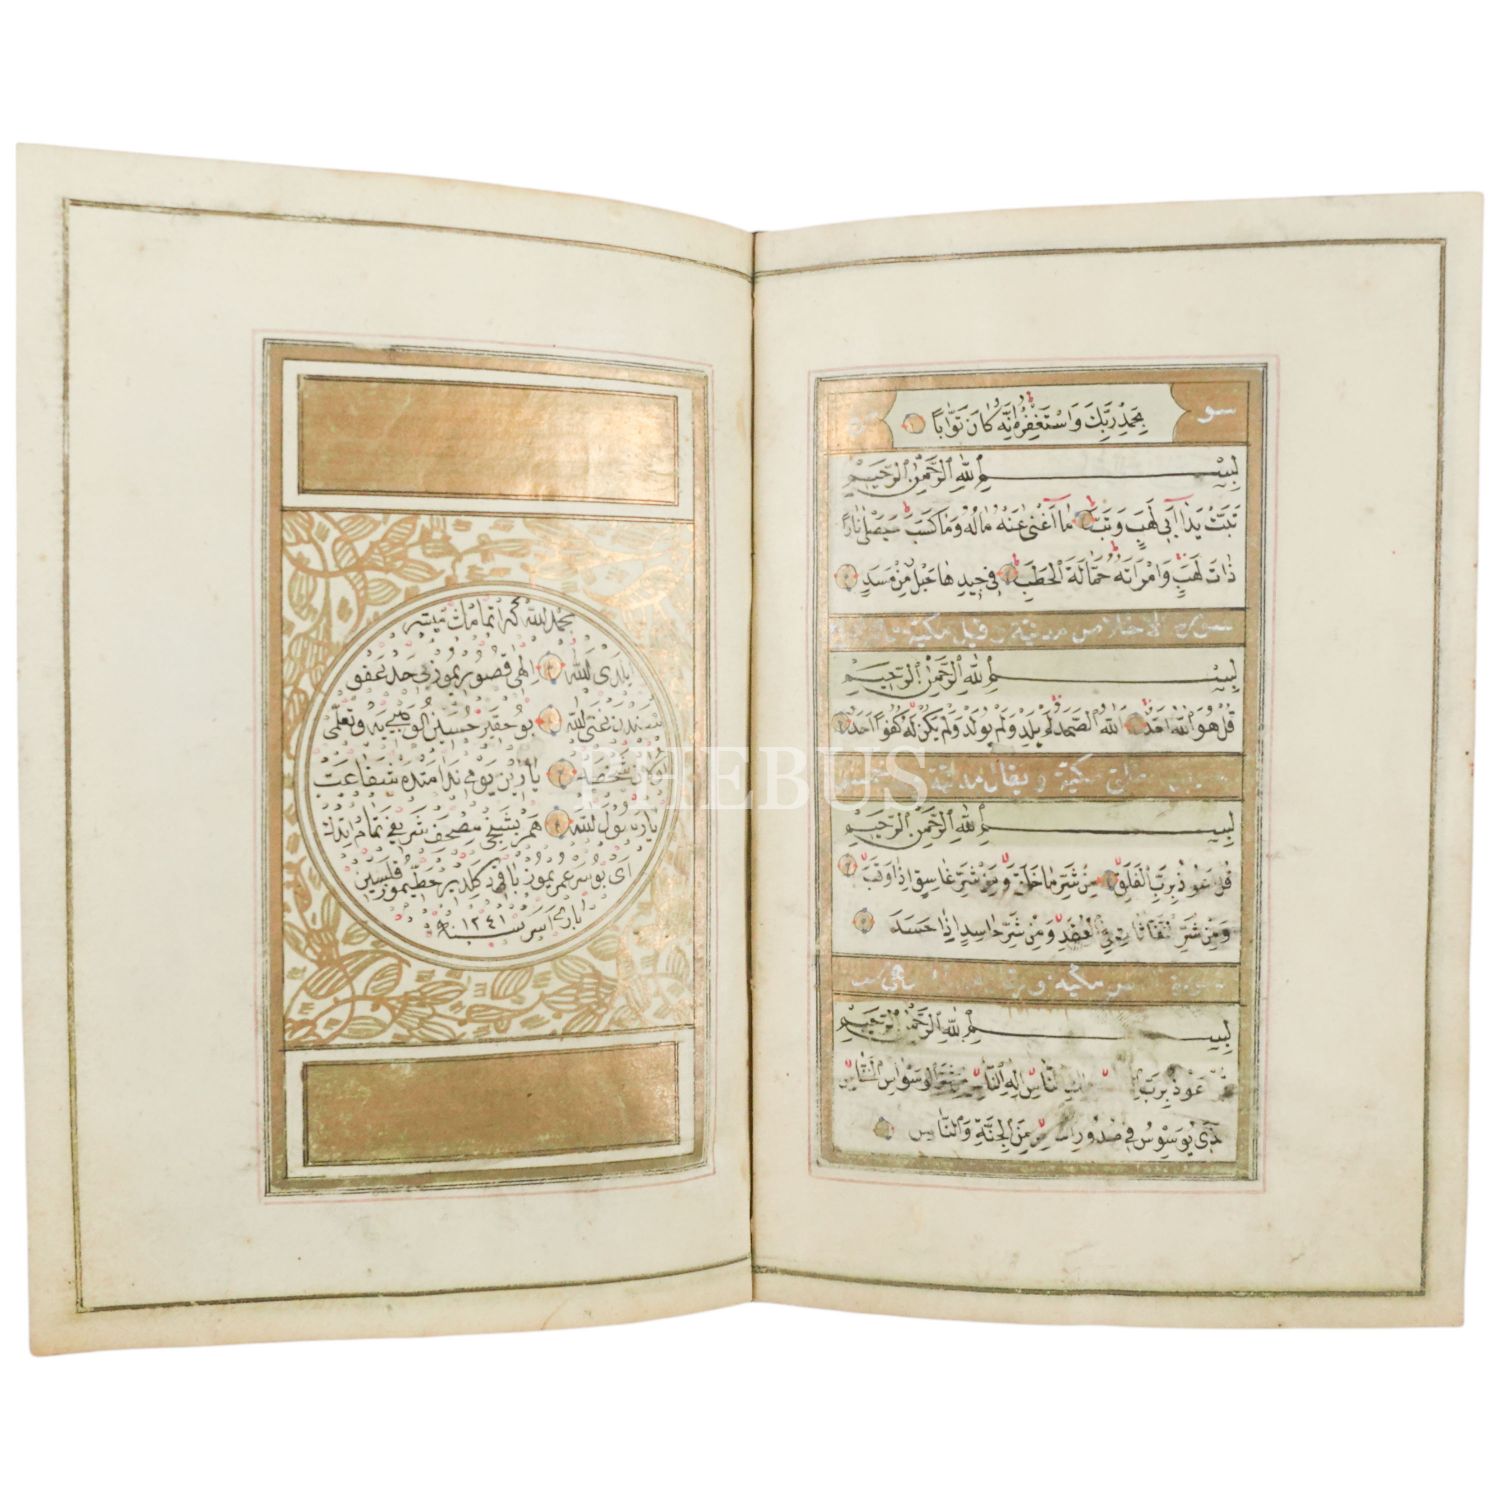 بِحَمْدِ رَبِّكَ وَاسْتَغْفِرْهُ اِنَّهُ كَانَ تَوَّابًا
سو
بِسْمِ اللّٰهِ الرَّحْمٰنِ الرَّحِيمِ
تَبَّتْ يَدَا اَبِي لَهَبٍ وَتَبَّ مَا اَغْنٰى عَنْهُ مَالُهُ وَمَا كَسَبَ سَيَصْلٰى نَارًا
ذَاتَ لَهَبٍ وَامْرَاَتُهُ حَمَّالَةَ الْحَطَبِ فِي جِيدِهَا حَبْلٌ مِنْ مَسَدٍ
سورة الاخلاص مدنية وقيل مكية
بِسْمِ اللّٰهِ الرَّحْمٰنِ الرَّحِيمِ
قُلْ هُوَ اللّٰهُ اَحَدٌ اَللّٰهُ الصَّمَدُ لَمْ يَلِدْ وَلَمْ يُولَدْ وَلَمْ يَكُنْ لَهُ كُفُوًا اَحَدٌ
مكية ويقال مدنية
بِسْمِ اللّٰهِ الرَّحْمٰنِ الرَّحِيمِ
قُلْ اَعُوذُ بِرَبِّ الْفَلَقِ مِنْ شَرِّ مَا خَلَقَ وَمِنْ شَرِّ غَاسِقٍ اِذَا وَقَبَ
وَمِنْ شَرِّ النَّفَّاثَاتِ فِي الْعُقَدِ وَمِنْ شَرِّ حَاسِدٍ اِذَا حَسَدَ
مكية
بِسْمِ اللّٰهِ الرَّحْمٰنِ الرَّحِيمِ
اَعُوذُ بِرَبِّ النَّاسِ اِلٰهِ النَّاسِ مِنْ شَرِّ الْوَسْوَاسِ الْخَنَّاسِ
يُوَسْوِسُ فِي صُدُورِ النَّاسِ مِنَ الْجِنَّةِ وَالنَّاسِ
بحمد الله كه اتمامك ميسر
يلدى الله الهى قصوريموز بى حد عفو
الله بو حقير حسين
يارين يوم ندامتده شفاعت
يا رسول الله هر بشيخ مصحف شريفى تمام ايدك
تاريخ سنه ١٢٤١
PHEBUS